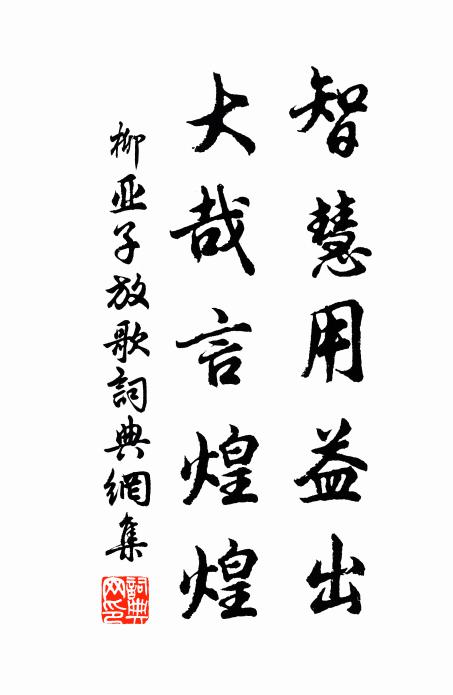 智慧用益出
大哉言煌煌
柳亚子放歌詞典網集
詞典
网印